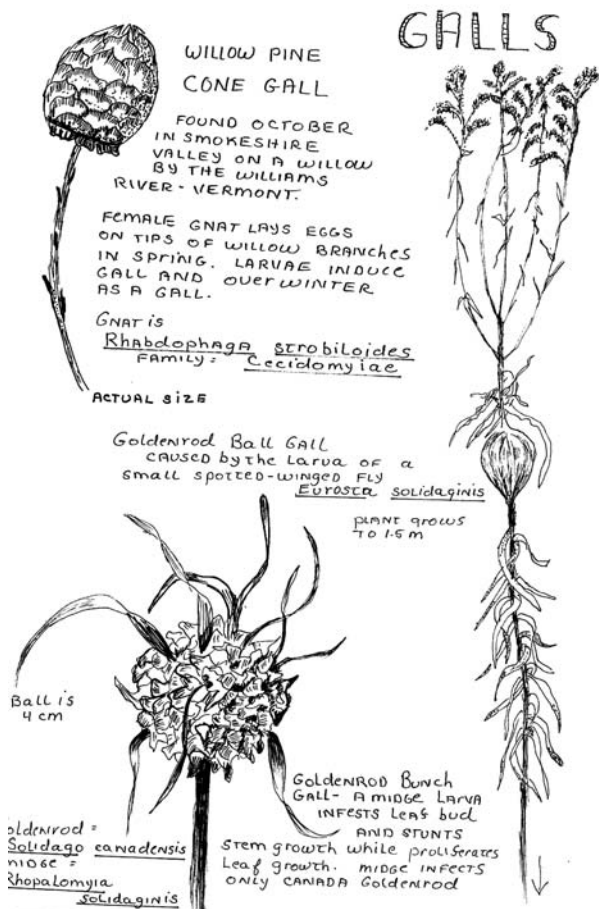 GALLS
WILLOW PINE
CONE GALL
FOUND OCTOBER
IN SMOKESHIRE
VALLEY ON A WILLOW
BY THE WILLIAMS
RIVER - VERMONT.
FEMALE GNAT LAYS EGGS
ON TIPS OF WILLOW BRANCHES
IN SPRING. LARVAE INDUCE
GALL AND OVERWINTER
AS A GALL.
GNAT IS
Rhabdophaga strobiloides
FAMILY = Cecidomyiae
ACTUAL SIZE
Goldenrod Ball Gall
CAUSED by the Larva of a
small spotted-winged fly
Eurosta solidaginis
PLANT grows
TO 1.5 m
Ball is
4 cm
Goldenrod Bunch
Gall - A midge Larva
INFESTS Leaf bud
AND STUNTS
Stem growth while proliferates
Leaf growth. midge infects
ONLY CANADA Goldenrod
oldenrod =
Solidago canadensis
midge =
Rhopalomyia
solidaginis